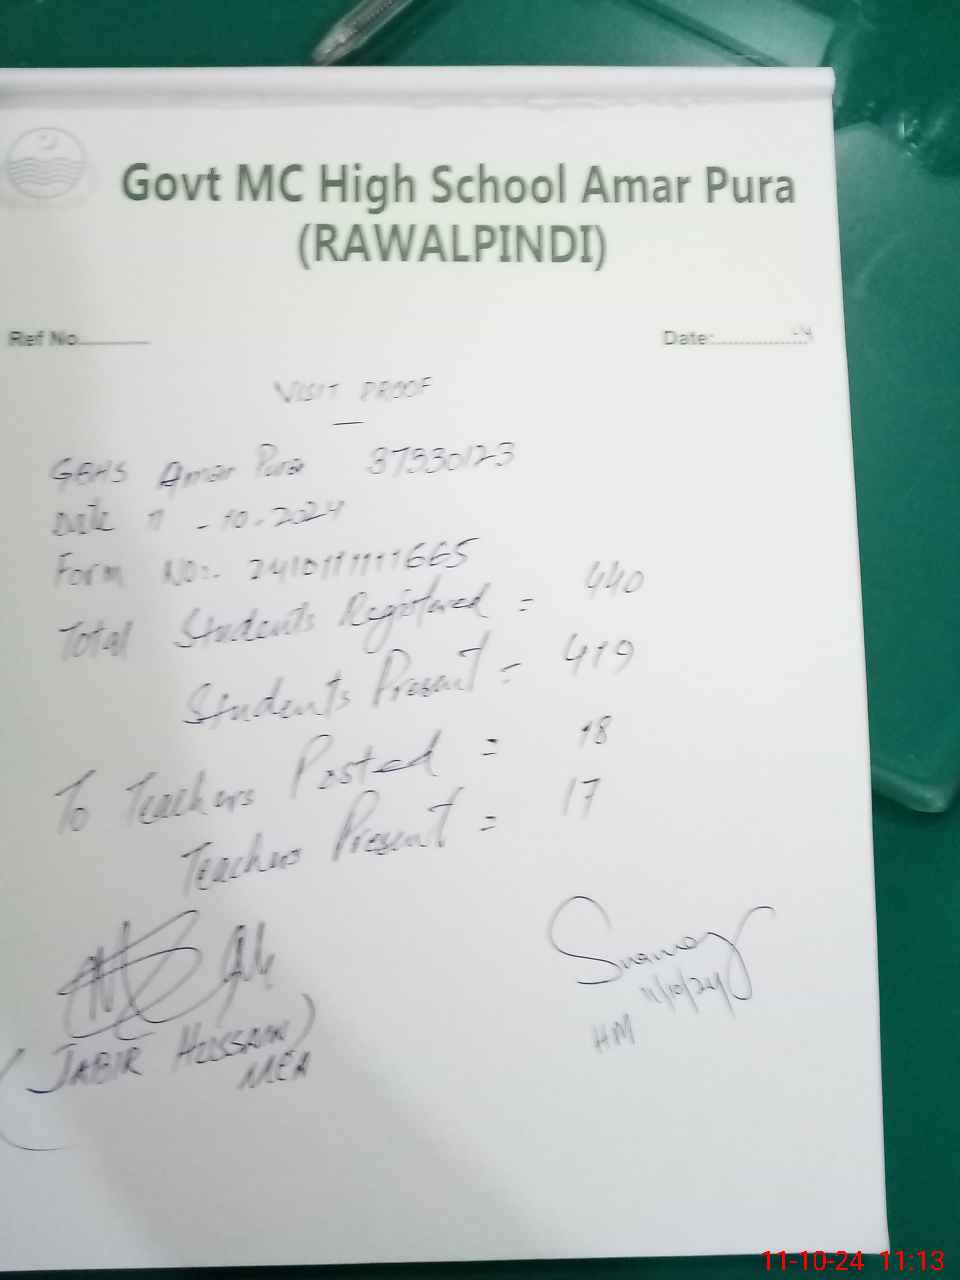 Govt MC High School Amar Pura
(RAWALPINDI)
Ref No............ Date:..................
VISIT PROOF
GBHS Amar Pura 37330123
Date 11 - 10 - 2024
Form NO:- 2410111111665
Total Students Registered = 440
Students Present = 419
To Teachers Posted = 18
Teachers Present = 17
11/10/24
HM
(JABIR HUSSAIN)
MEA
11-10-24 11:13